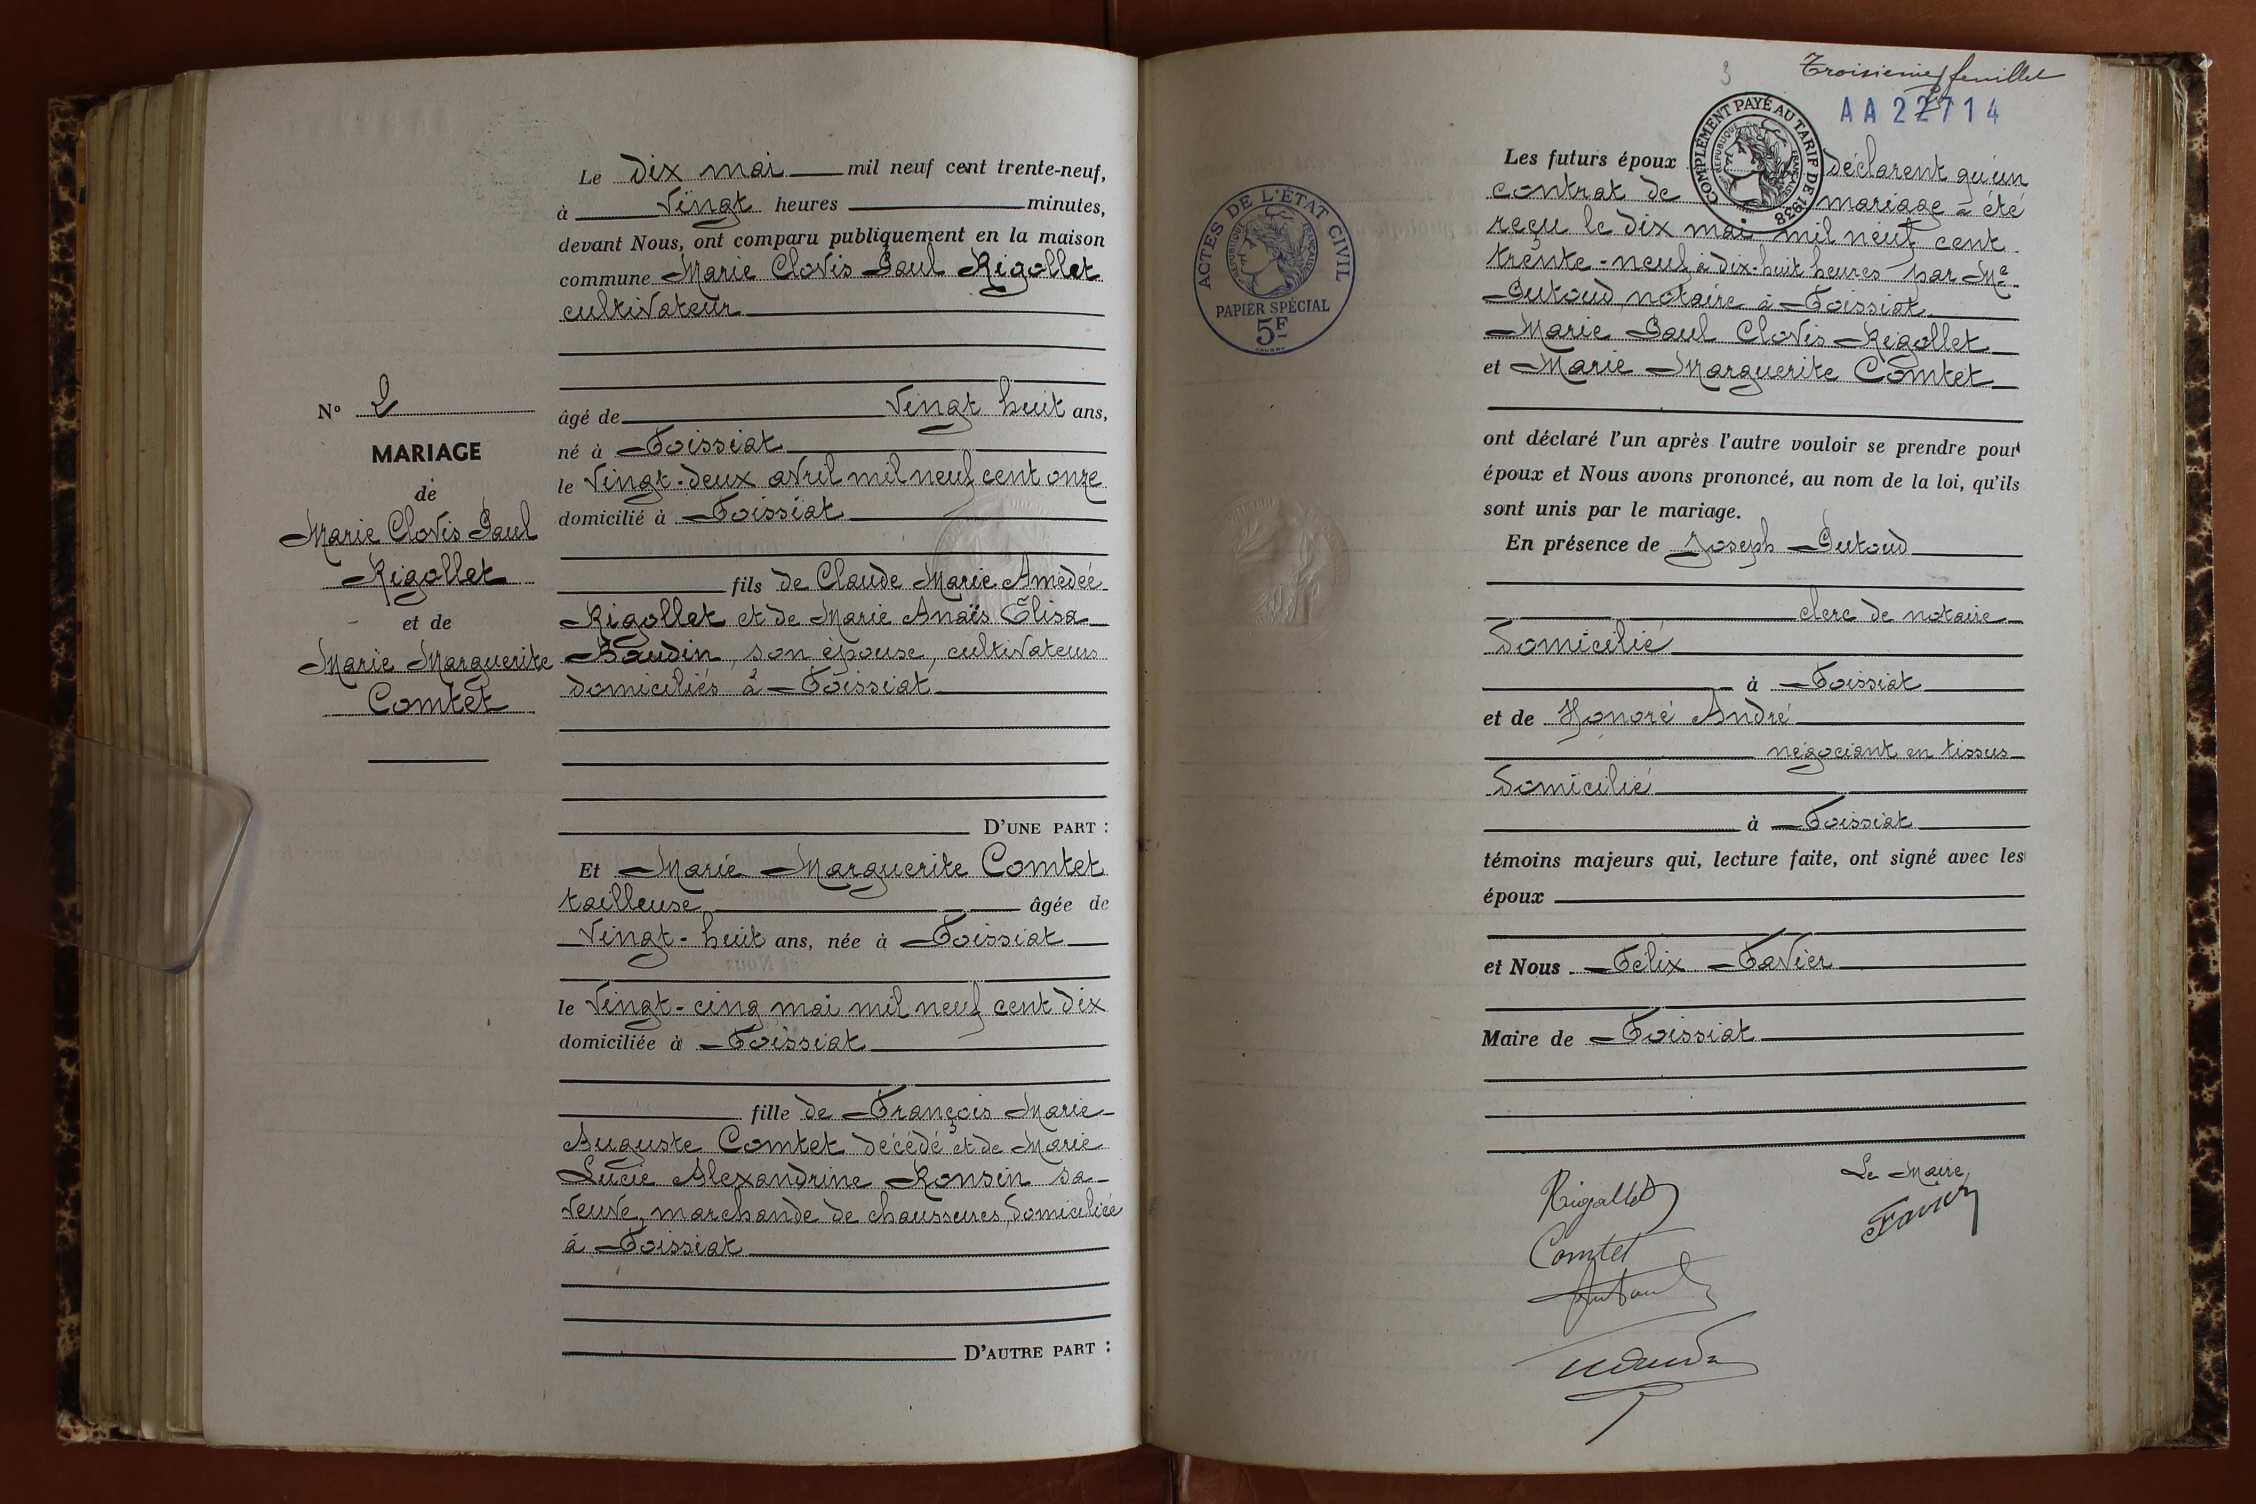 N° 2
MARIAGE
de
Marie Clovis Paul
Rigollet
et de
Marie Marguerite
Comtet
Le dix mai mil neuf cent trente-neuf,
à vingt heures minutes,
devant Nous, ont comparu publiquement en la maison
commune Marie Clovis Paul Rigollet
cultivateur
âgé de vingt huit ans,
né à Foissiat
le vingt-deux avril mil neuf cent onze
domicilié à Foissiat
fils de Claude Marie Amédeé
Rigollet et de Marie Anaïs Elisa
Baudin, son épouse, cultivateurs
domiciliés à Foissiat
D'UNE PART :
Et Marie Marguerite Comtet
tailleuse âgée de
vingt-huit ans, née à Foissiat
le vingt-cinq mai mil neuf cent dix
domiciliée à Foissiat
fille de François Marie
Auguste Comtet décédé et de Marie
Lucie Alexandrine Ronsin sa
veuve, marchande de chaussures, domiciliée
à Foissiat
D'AUTRE PART :
3
Troisième feuillet
AA 22714
COMPLÉMENT PAYÉ AU TARIF DE 1938
RÉPUBLIQUE FRANÇAISE
ACTES DE L'ÉTAT CIVIL
RÉPUBLIQUE FRANÇAISE
PAPIER SPÉCIAL
5F
Les futurs époux déclarent qu'un
contrat de mariage a été
reçu le dix mai mil neuf cent
trente-neuf à dix-huit heures par Me
Putoud notaire à Foissiat
Marie Paul Clovis Rigollet
et Marie Marguerite Comtet
ont déclaré l'un après l'autre vouloir se prendre pour
époux et Nous avons prononcé, au nom de la loi, qu'ils
sont unis par le mariage.
En présence de Joseph Putoud
clerc de notaire
domicilié
à Foissiat
et de Honoré André
négociant en tissus
domicilié
à Foissiat
témoins majeurs qui, lecture faite, ont signé avec les
époux
et Nous Félix Favier
Maire de Foissiat
Le Maire
Rigollet
Favier
Comtet
Putoud